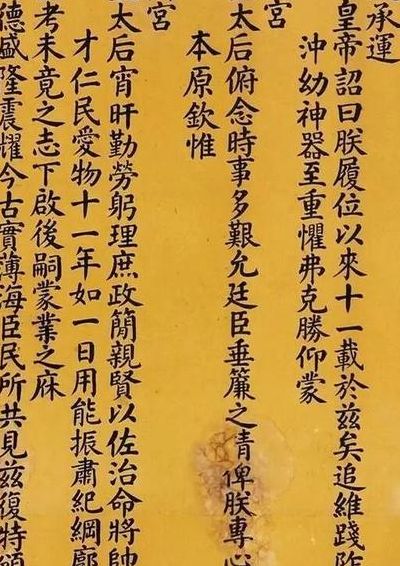 承運
皇帝詔曰朕履位以來十一載於茲矣追維踐阼
沖幼神器至重懼弗克勝仰蒙
宮
太后俯念時事多艱允廷臣垂簾之請俾朕專心
本原欽惟
宮
太后宵旰勤勞躬理庶政簡親賢以佐治命將帥
才仁民愛物十一年如一日用能振肅紀綱廓
考未竟之志下啟後嗣蒙業之庥
德盛隆震耀今古實薄海臣民所共見茲復特頒